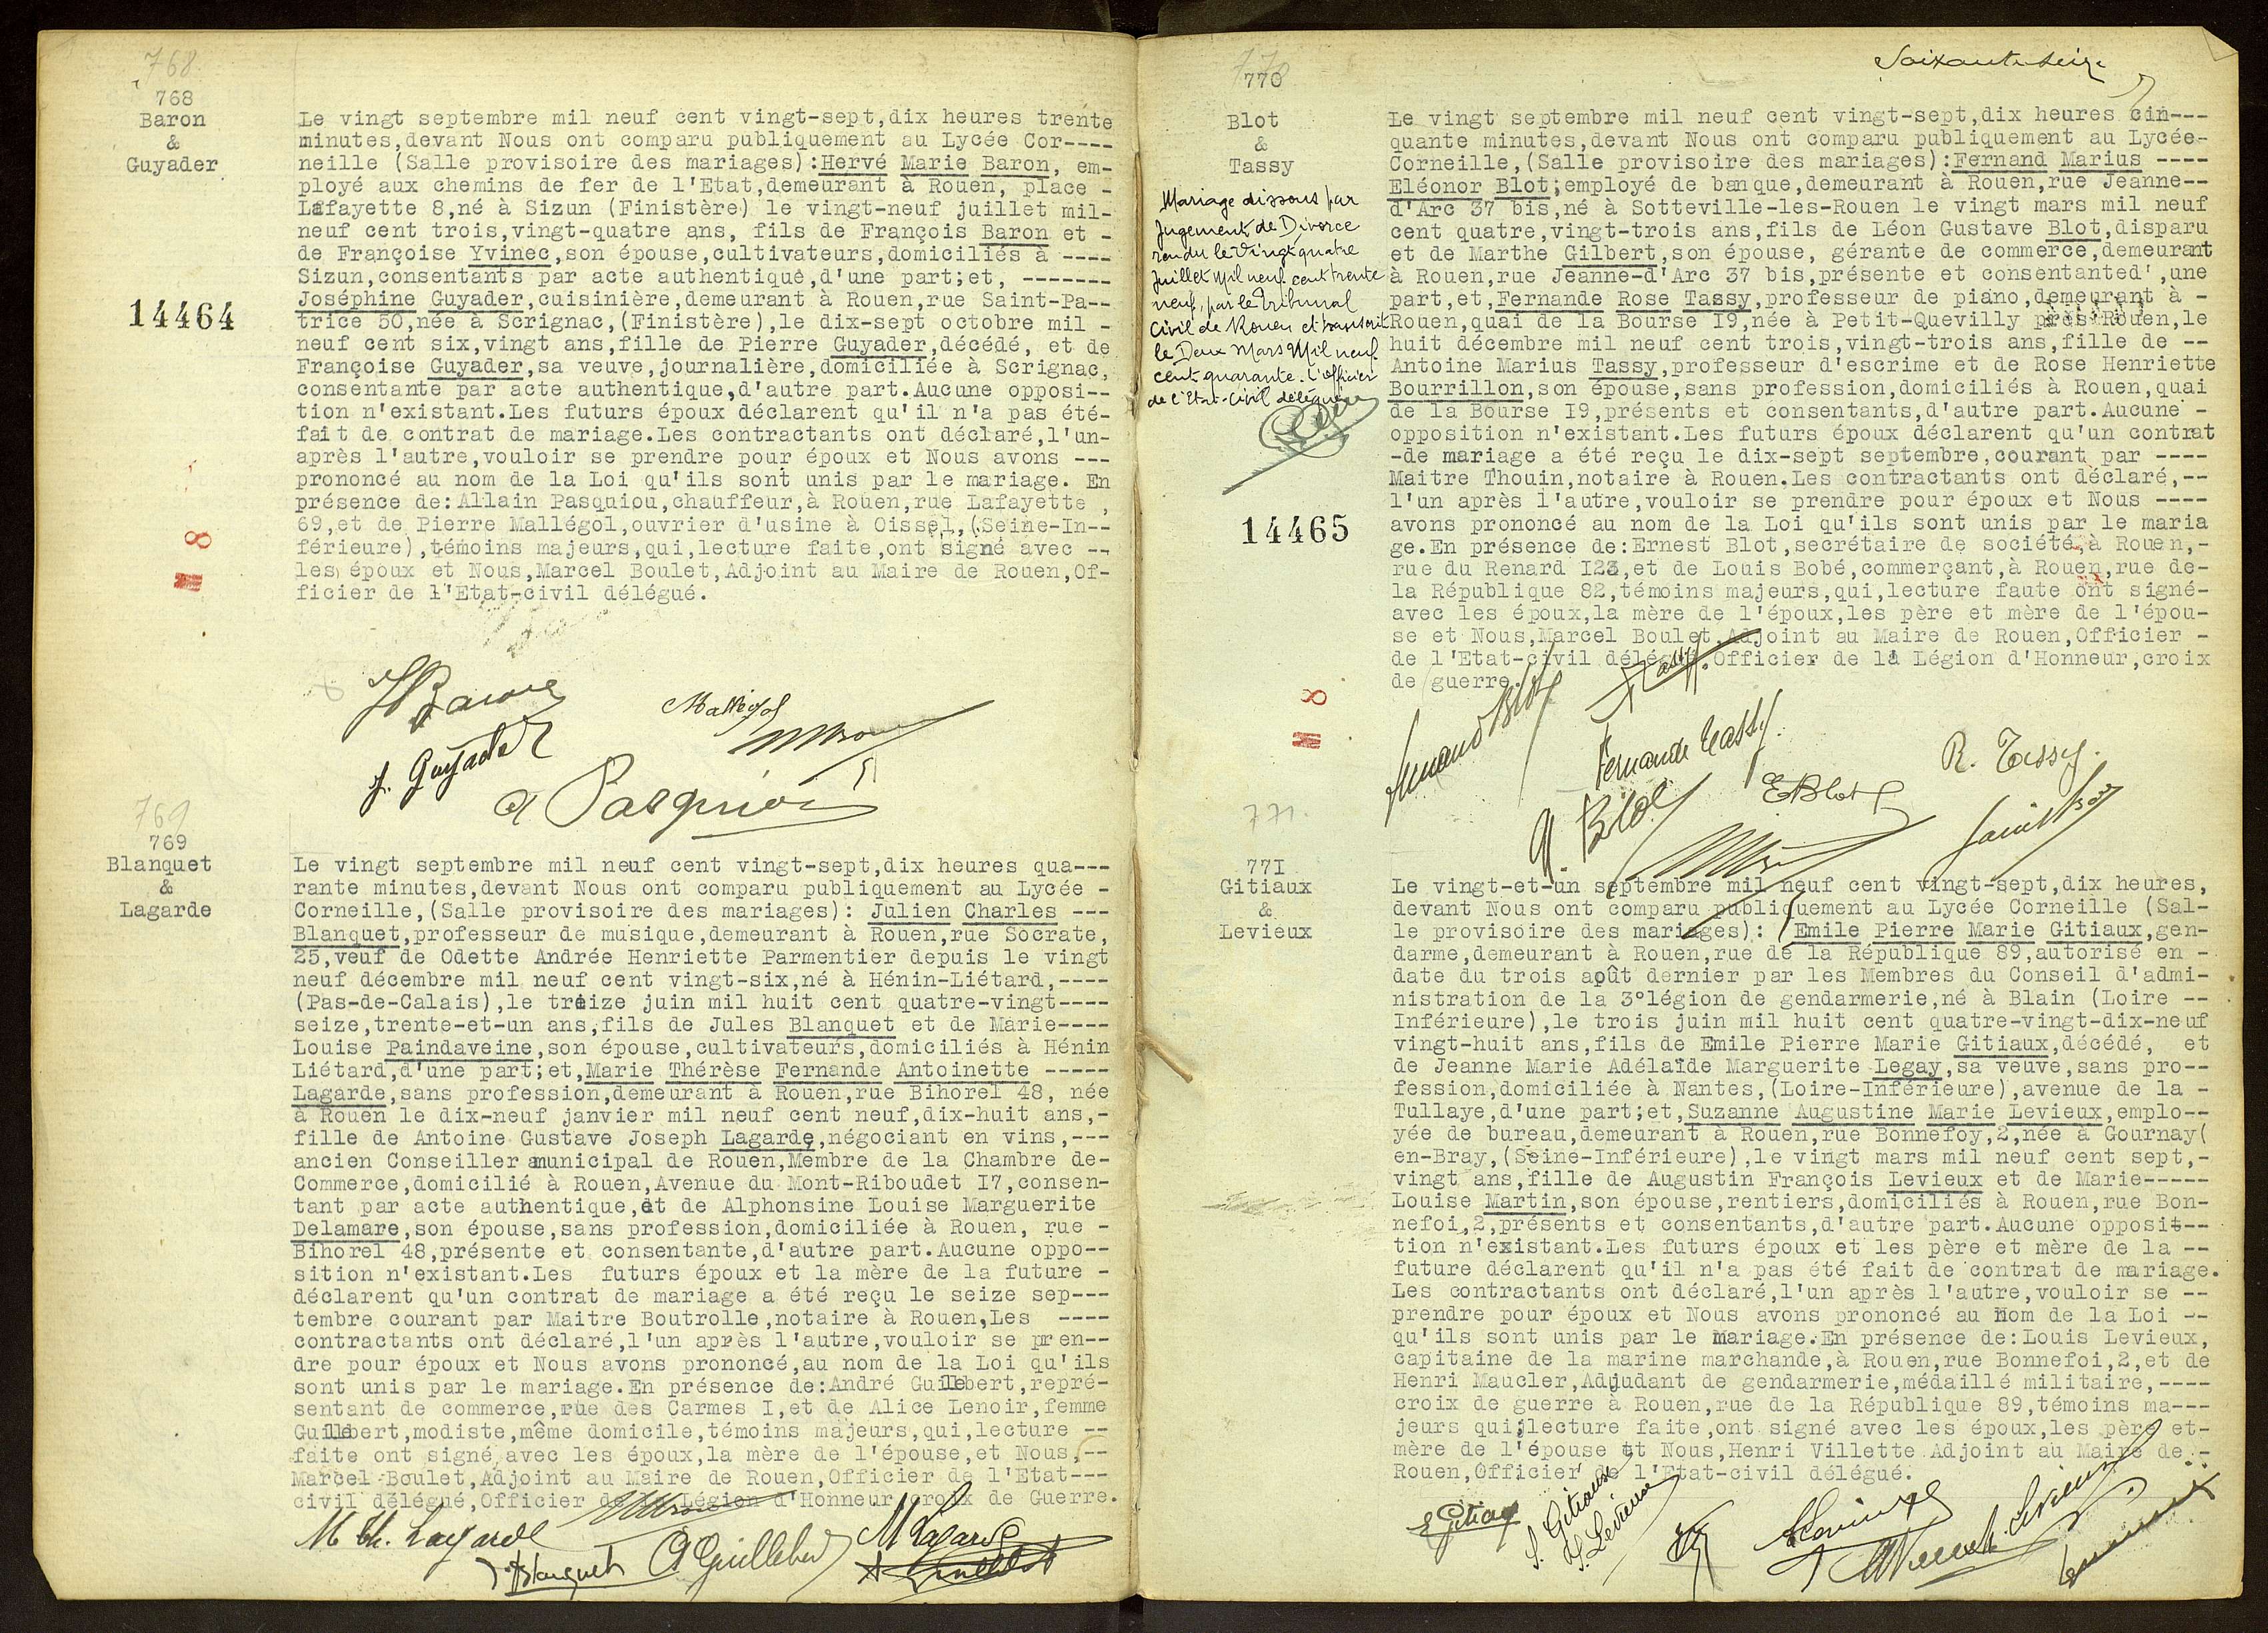 768
768
Baron
&
Guyader
14464
M 8
Le vingt septembre mil neuf cent vingt-sept,dix heures trente
minutes,devant Nous ont comparu publiquement au Lycée Cor----
neille (Salle provisoire des mariages):Hervé Marie Baron, em-
ployé aux chemins de fer de l'Etat,demeurant à Rouen, place -
Lafayette 8,né à Sizun (Finistère) le vingt-neuf juillet mil-
neuf cent trois,vingt-quatre ans, fils de François Baron et -
de Françoise Yvinec,son épouse,cultivateurs,domiciliés à ----
Sizun,consentants par acte authentique,d'une part;et, -------
Joséphine Guyader,cuisinière,demeurant à Rouen,rue Saint-Pa--
trice 50,née à Scrignac,(Finistère),le dix-sept octobre mil -
neuf cent six,vingt ans,fille de Pierre Guyader,décédé, et de
Françoise Guyader,sa veuve,journalière,domiciliée à Scrignac,
consentante par acte authentique,d'autre part.Aucune opposi--
tion n'existant.Les futurs époux déclarent qu'il n'a pas été-
fait de contrat de mariage.Les contractants ont déclaré,l'un-
après l'autre,vouloir se prendre pour époux et Nous avons ---
prononcé au nom de la Loi qu'ils sont unis par le mariage. En
présence de:Allain Pasquiou,chauffeur,à Rouen,rue Lafayette ,
69,et de Pierre Mallégol,ouvrier d'usine à Oissel,(Seine-In--
férieure),témoins majeurs,qui,lecture faite,ont signé avec --
les époux et Nous,Marcel Boulet,Adjoint au Maire de Rouen,Of-
ficier de l'Etat-civil délégué.
H Baron
Mallégol
J. Guyader
A Pasquiou
769
769
Blanquet
&
Lagarde
Le vingt septembre mil neuf cent vingt-sept,dix heures qua---
rante minutes,devant Nous ont comparu publiquement au Lycée -
Corneille,(Salle provisoire des mariages): Julien Charles ---
Blanquet,professeur de musique,demeurant à Rouen,rue Socrate,
25,veuf de Odette Andrée Henriette Parmentier depuis le vingt
neuf décembre mil neuf cent vingt-six,né à Hénin-Liétard,----
(Pas-de-Calais),le treize juin mil huit cent quatre-vingt----
seize,trente-et-un ans,fils de Jules Blanquet et de Marie----
Louise Paindaveine,son épouse,cultivateurs,domiciliés à Hénin
Liétard,d'une part;et,Marie Thérèse Fernande Antoinette -----
Lagarde,sans profession,demeurant à Rouen,rue Bihorel 48, née
à Rouen le dix-neuf janvier mil neuf cent neuf,dix-huit ans,-
fille de Antoine Gustave Joseph Lagarde,négociant en vins,---
ancien Conseiller municipal de Rouen,Membre de la Chambre de-
Commerce,domicilié à Rouen,Avenue du Mont-Riboudet I7,consen-
tant par acte authentique,et de Alphonsine Louise Marguerite
Delamare,son épouse,sans profession,domiciliée à Rouen, rue -
Bihorel 48,présente et consentante,d'autre part.Aucune oppo--
sition n'existant.Les futurs époux et la mère de la future -
déclarent qu'un contrat de mariage a été reçu le seize sep---
tembre courant par Maitre Boutrolle,notaire à Rouen,Les ----
contractants ont déclaré,l'un après l'autre,vouloir se pren--
dre pour époux et Nous avons prononcé,au nom de la Loi qu'ils
sont unis par le mariage.En présence de:André Guillebert,repré-
sentant de commerce,rue des Carmes I,et de Alice Lenoir,femme
Guillebert,modiste,même domicile,témoins majeurs,qui,lecture --
faite ont signé avec les époux,la mère de l'épouse,et Nous,--
Marcel Boulet,Adjoint au Maire de Rouen,Officier de l'Etat---
civil délégué,Officier de la Légion d'Honneur,croix de Guerre.
M Th. Lagarde
M Lagarde
J Blanquet
A Guillebert
A Guillebert
Soixante seize
770
770
Blot
&
Tassy
Mariage dissous par
Jugement de Divorce
rendu le vingt quatre
Juillet Mil neuf cent trente
neuf, par le tribunal
Civil de Rouen et transcrit
le Deux Mars Mil neuf
cent quarante. L'officier
de l'Etat-Civil délégué
14465
M 8
Le vingt septembre mil neuf cent vingt-sept,dix heures cin---
quante minutes,devant Nous ont comparu publiquement au Lycée-
Corneille,(Salle provisoire des mariages):Fernand Marius ----
Eléonor Blot;employé de banque,demeurant à Rouen,rue Jeanne--
d'Arc 37 bis,né à Sotteville-les-Rouen le vingt mars mil neuf
cent quatre,vingt-trois ans,fils de Léon Gustave Blot,disparu
et de Marthe Gilbert,son épouse, gérante de commerce,demeurant
à Rouen,rue Jeanne-d'Arc 37 bis,présente et consentanted',une
part,et,Fernande Rose Tassy,professeur de piano,demeurant à -
Rouen,quai de la Bourse I9,née à Petit-Quevilly près Rouen,le
huit décembre mil neuf cent trois,vingt-trois ans,fille de --
Antoine Marius Tassy,professeur d'escrime et de Rose Henriette
Bourrillon,son épouse,sans profession,domiciliés à Rouen,quai
de la Bourse I9,présents et consentants,d'autre part.Aucune -
opposition n'existant.Les futurs époux déclarent qu'un contrat
-de mariage a été reçu le dix-sept septembre,courant par ----
Maitre Thouin,notaire à Rouen.Les contractants ont déclaré,--
l'un après l'autre,vouloir se prendre pour époux et Nous ----
avons prononcé au nom de la Loi qu'ils sont unis par le maria
ge.En présence de:Ernest Blot,secrétaire de société,à Rouen,-
rue du Renard I23,et de Louis Bobé,commerçant,à Rouen,rue de-
la République 82,témoins majeurs,qui,lecture faute ont signé-
avec les époux,la mère de l'époux,les père et mère de l'épou-
se et Nous,Marcel Boulet,Adjoint au Maire de Rouen,Officier -
de l'Etat-civil délégué,Officier de la Légion d'Honneur,croix
de guerre.
Tassy
Fernand Blot
Fernande Tassy
R. Tassy
M. Blot
E Blot
771.
77I
Gitiaux
&
Levieux
Le vingt-et-un septembre mil neuf cent vingt-sept,dix heures,
devant Nous ont comparu publiquement au Lycée Corneille (Sal-
le provisoire des mariages): Emile Pierre Marie Gitiaux,gen-
darme,demeurant à Rouen,rue de la République 89,autorisé en -
date du trois août dernier par les Membres du Conseil d'admi-
nistration de la 3°légion de gendarmerie,né à Blain (Loire --
Inférieure),le trois juin mil huit cent quatre-vingt-dix-neuf
vingt-huit ans,fils de Emile Pierre Marie Gitiaux,décédé, et
de Jeanne Marie Adélaïde Marguerite Legay,sa veuve,sans pro--
fession,domiciliée à Nantes,(Loire-Inférieure),avenue de la -
Tullaye,d'une part;et,Suzanne Augustine Marie Levieux,emplo--
yée de bureau,demeurant à Rouen,rue Bonnefoy,2,née à Gournay(
en-Bray,(Seine-Inférieure),le vingt mars mil neuf cent sept,-
vingt ans,fille de Augustin François Levieux et de Marie-----
Louise Martin,son épouse,rentiers,domiciliés à Rouen,rue Bon-
nefoi,2,présents et consentants,d'autre part.Aucune opposit--
tion n'existant.Les futurs époux et les père et mère de la --
future déclarent qu'il n'a pas été fait de contrat de mariage.
Les contractants ont déclaré,l'un après l'autre,vouloir se --
prendre pour époux et Nous avons prononcé au nom de la Loi --
qu'ils sont unis par le mariage.En présence de:Louis Levieux,
capitaine de la marine marchande,à Rouen,rue Bonnefoi,2,et de
Henri Maucler,Adjudant de gendarmerie,médaillé militaire,----
croix de guerre à Rouen,rue de la République 89,témoins ma---
jeurs qui,lecture faite,ont signé avec les époux,les père et-
mère de l'épouse et Nous,Henri Villette Adjoint au Maire de --
Rouen,Officier de l'Etat-civil délégué.
E Gitiaux
S. Gitiaux
S. Levieux